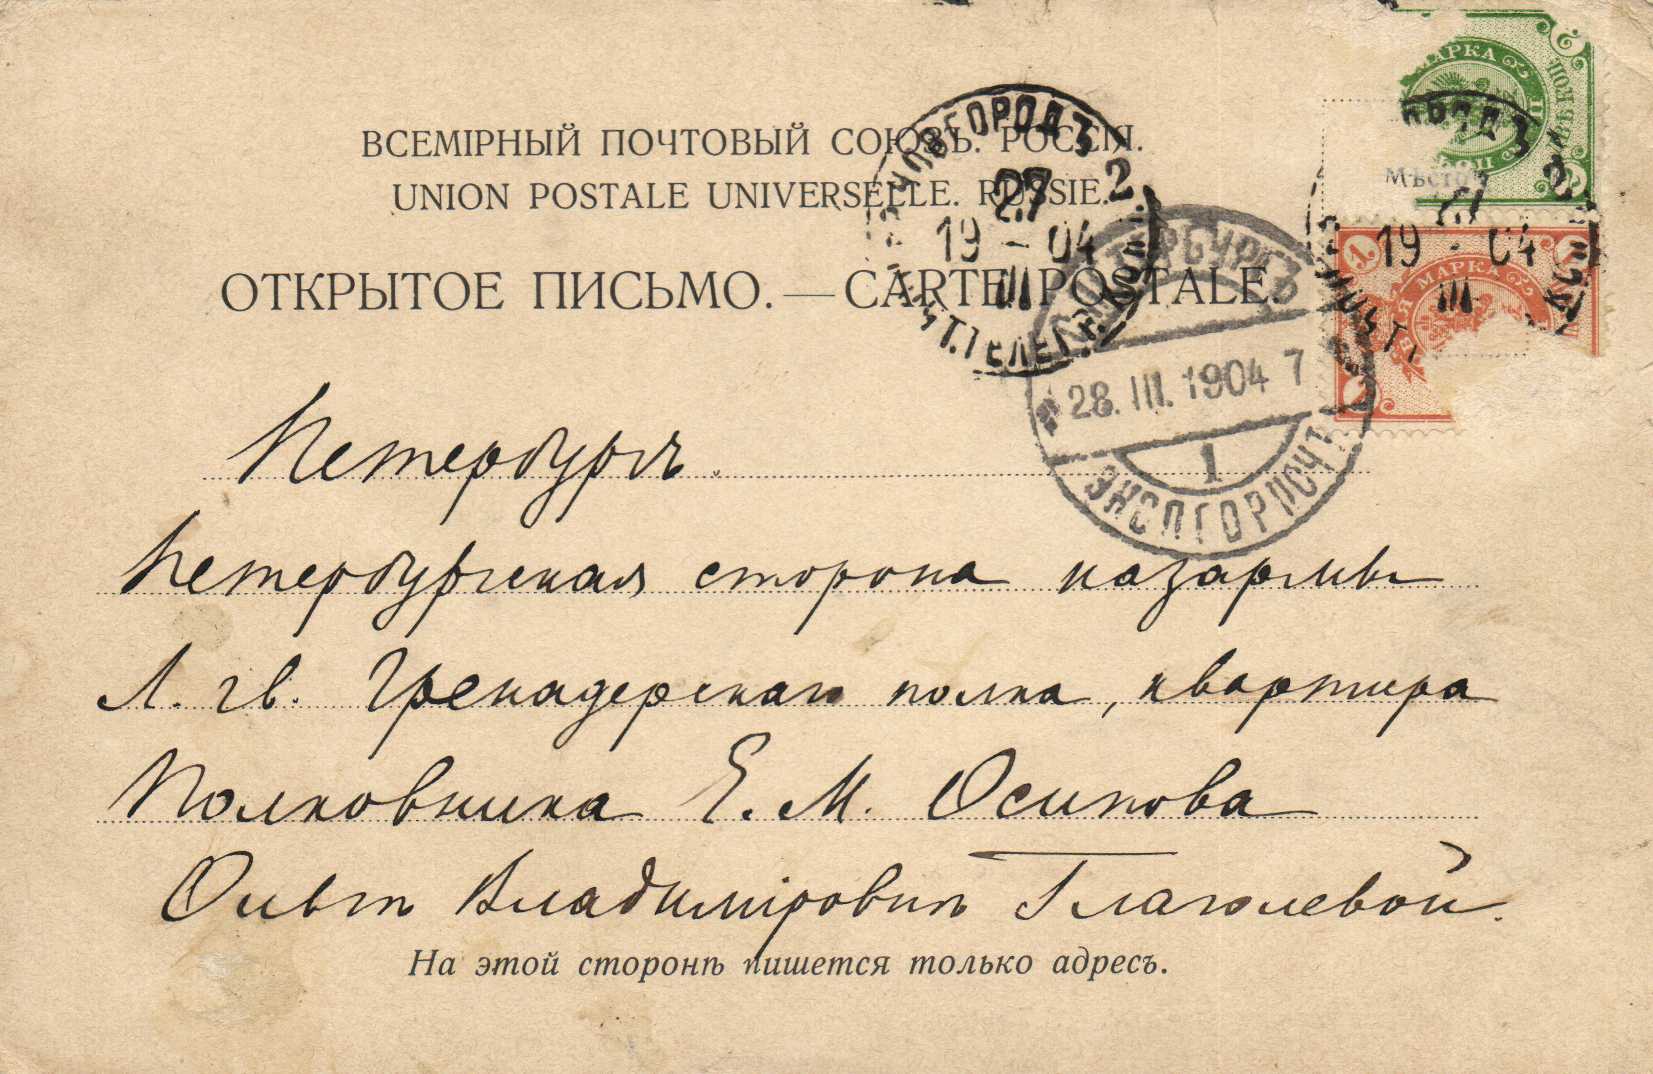 ВСЕМІРНЫЙ ПОЧТОВЫЙ СОЮЗЪ. РОССІЯ.
UNION POSTALE UNIVERSELLE. RUSSIE.
ОТКРЫТОЕ ПИСЬМО.—CARTE POSTALE.
НОВГОРОДЪ
27 2
19 - 04
III
ПОЧТ. ТЕЛЕГР. КОН.
МАРКА
2
МѢСТО
19 - 04
III
1
МАРКА
ПЕТЕРБУРГЪ
28. III. 1904 7
1
ЭКСП ГОР ПОЧТ
Петербургъ.
Петербургская сторона казармы
Л. гв. Гренадерскаго полка, квартира
Полковника Е. М. Осипова
Ольгѣ Владиміровнѣ Глаголевой.
На этой сторонѣ пишется только адресъ.